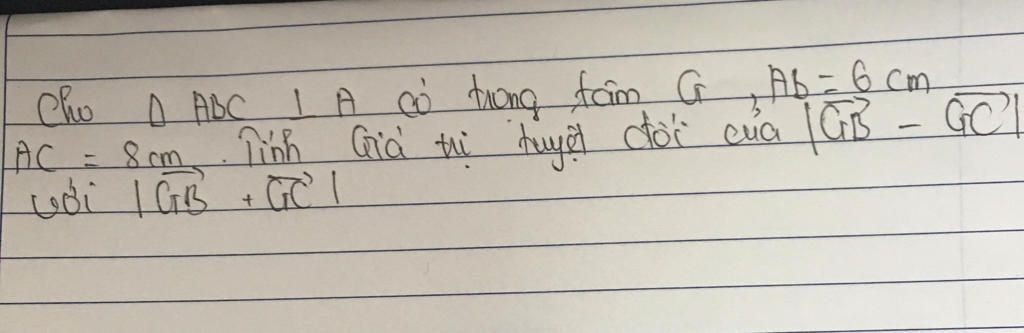 Cho Δ ABC ⊥ A có trọng tâm G, Ab = 6 cm
AC = 8 cm. Tính Giá trị tuyệt đối của |\overrightarrow{GB} - \overrightarrow{GC}|
với |\overrightarrow{GB} + \overrightarrow{GC}|